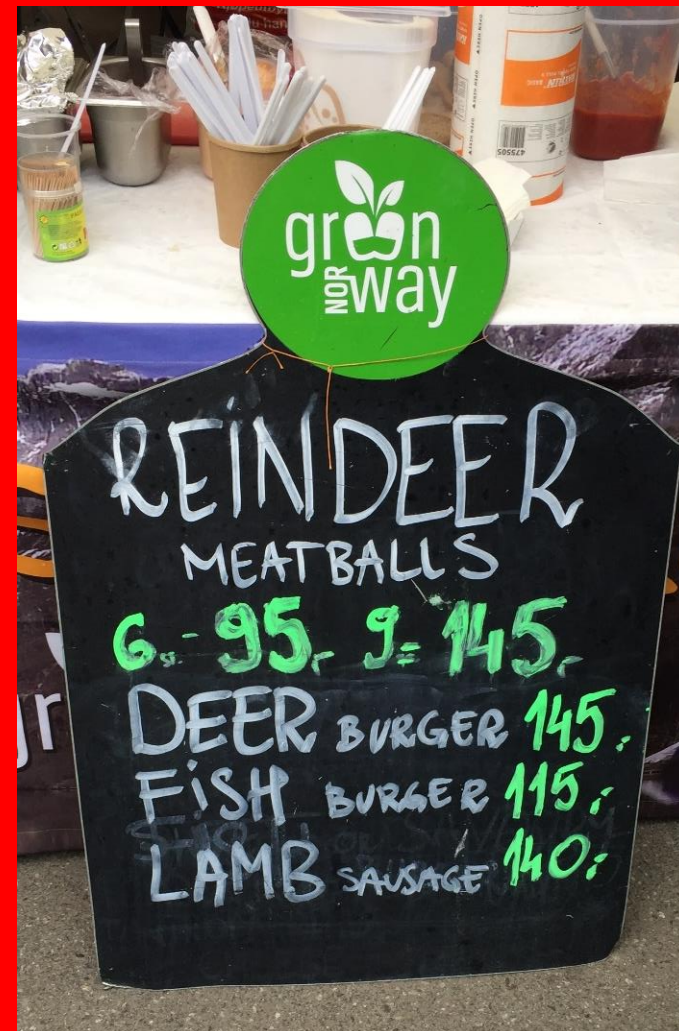 green
NOR way
REINDEER
MEATBALLS
6.- 95,- 9= 145,-
DEER BURGER 145,-
FISH BURGER 115,-
LAMB SAUSAGE 140,-
475505
gr